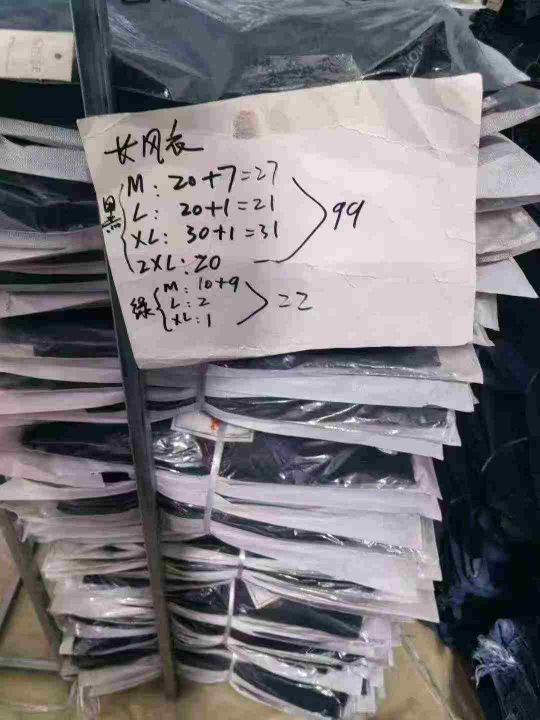 女风衣
黑
M: 20+7=27
L: 20+1=21
XL: 30+1=31
2XL: 20
99
绿
M: 10+9
L: 2
XL: 1
=22